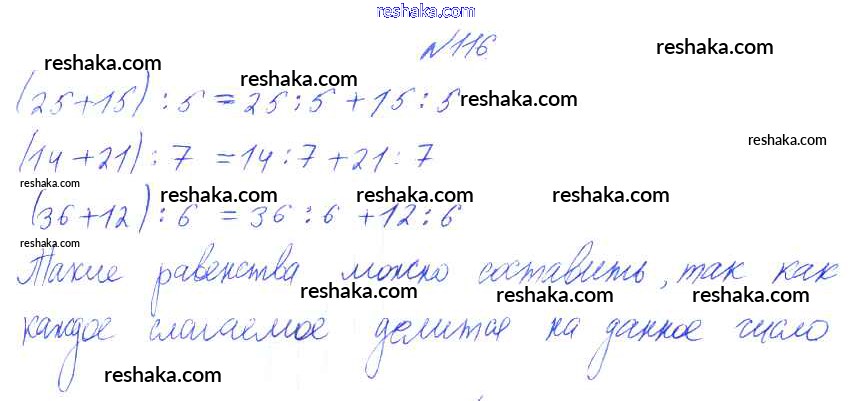 reshaka.com
№116.
reshaka.com
reshaka.com
reshaka.com
(25+15) : 5 = 25 : 5 + 15 : 5
reshaka.com
reshaka.com
(14+21) : 7 = 14 : 7 + 21 : 7
reshaka.com
reshaka.com
reshaka.com
reshaka.com
(36+12) : 6 = 36 : 6 + 12 : 6
reshaka.com
Такие равенства можно составить, так как
reshaka.com
reshaka.com
reshaka.com
каждое слагаемое делится на данное число
reshaka.com